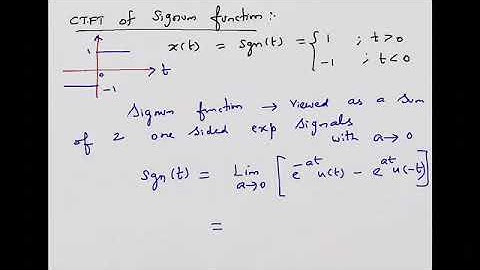 CTFT of Signum function :-
x(t) = Sgn(t) = { 1 ; t>0
-1 ; t<0
1
0
t
-1
Signum function → viewed as a sum
of 2 one sided exp signals
with a→0
Sgn(t) = Lim a→0 [ e^{-at} u(t) - e^{at} u(-t) ]
=